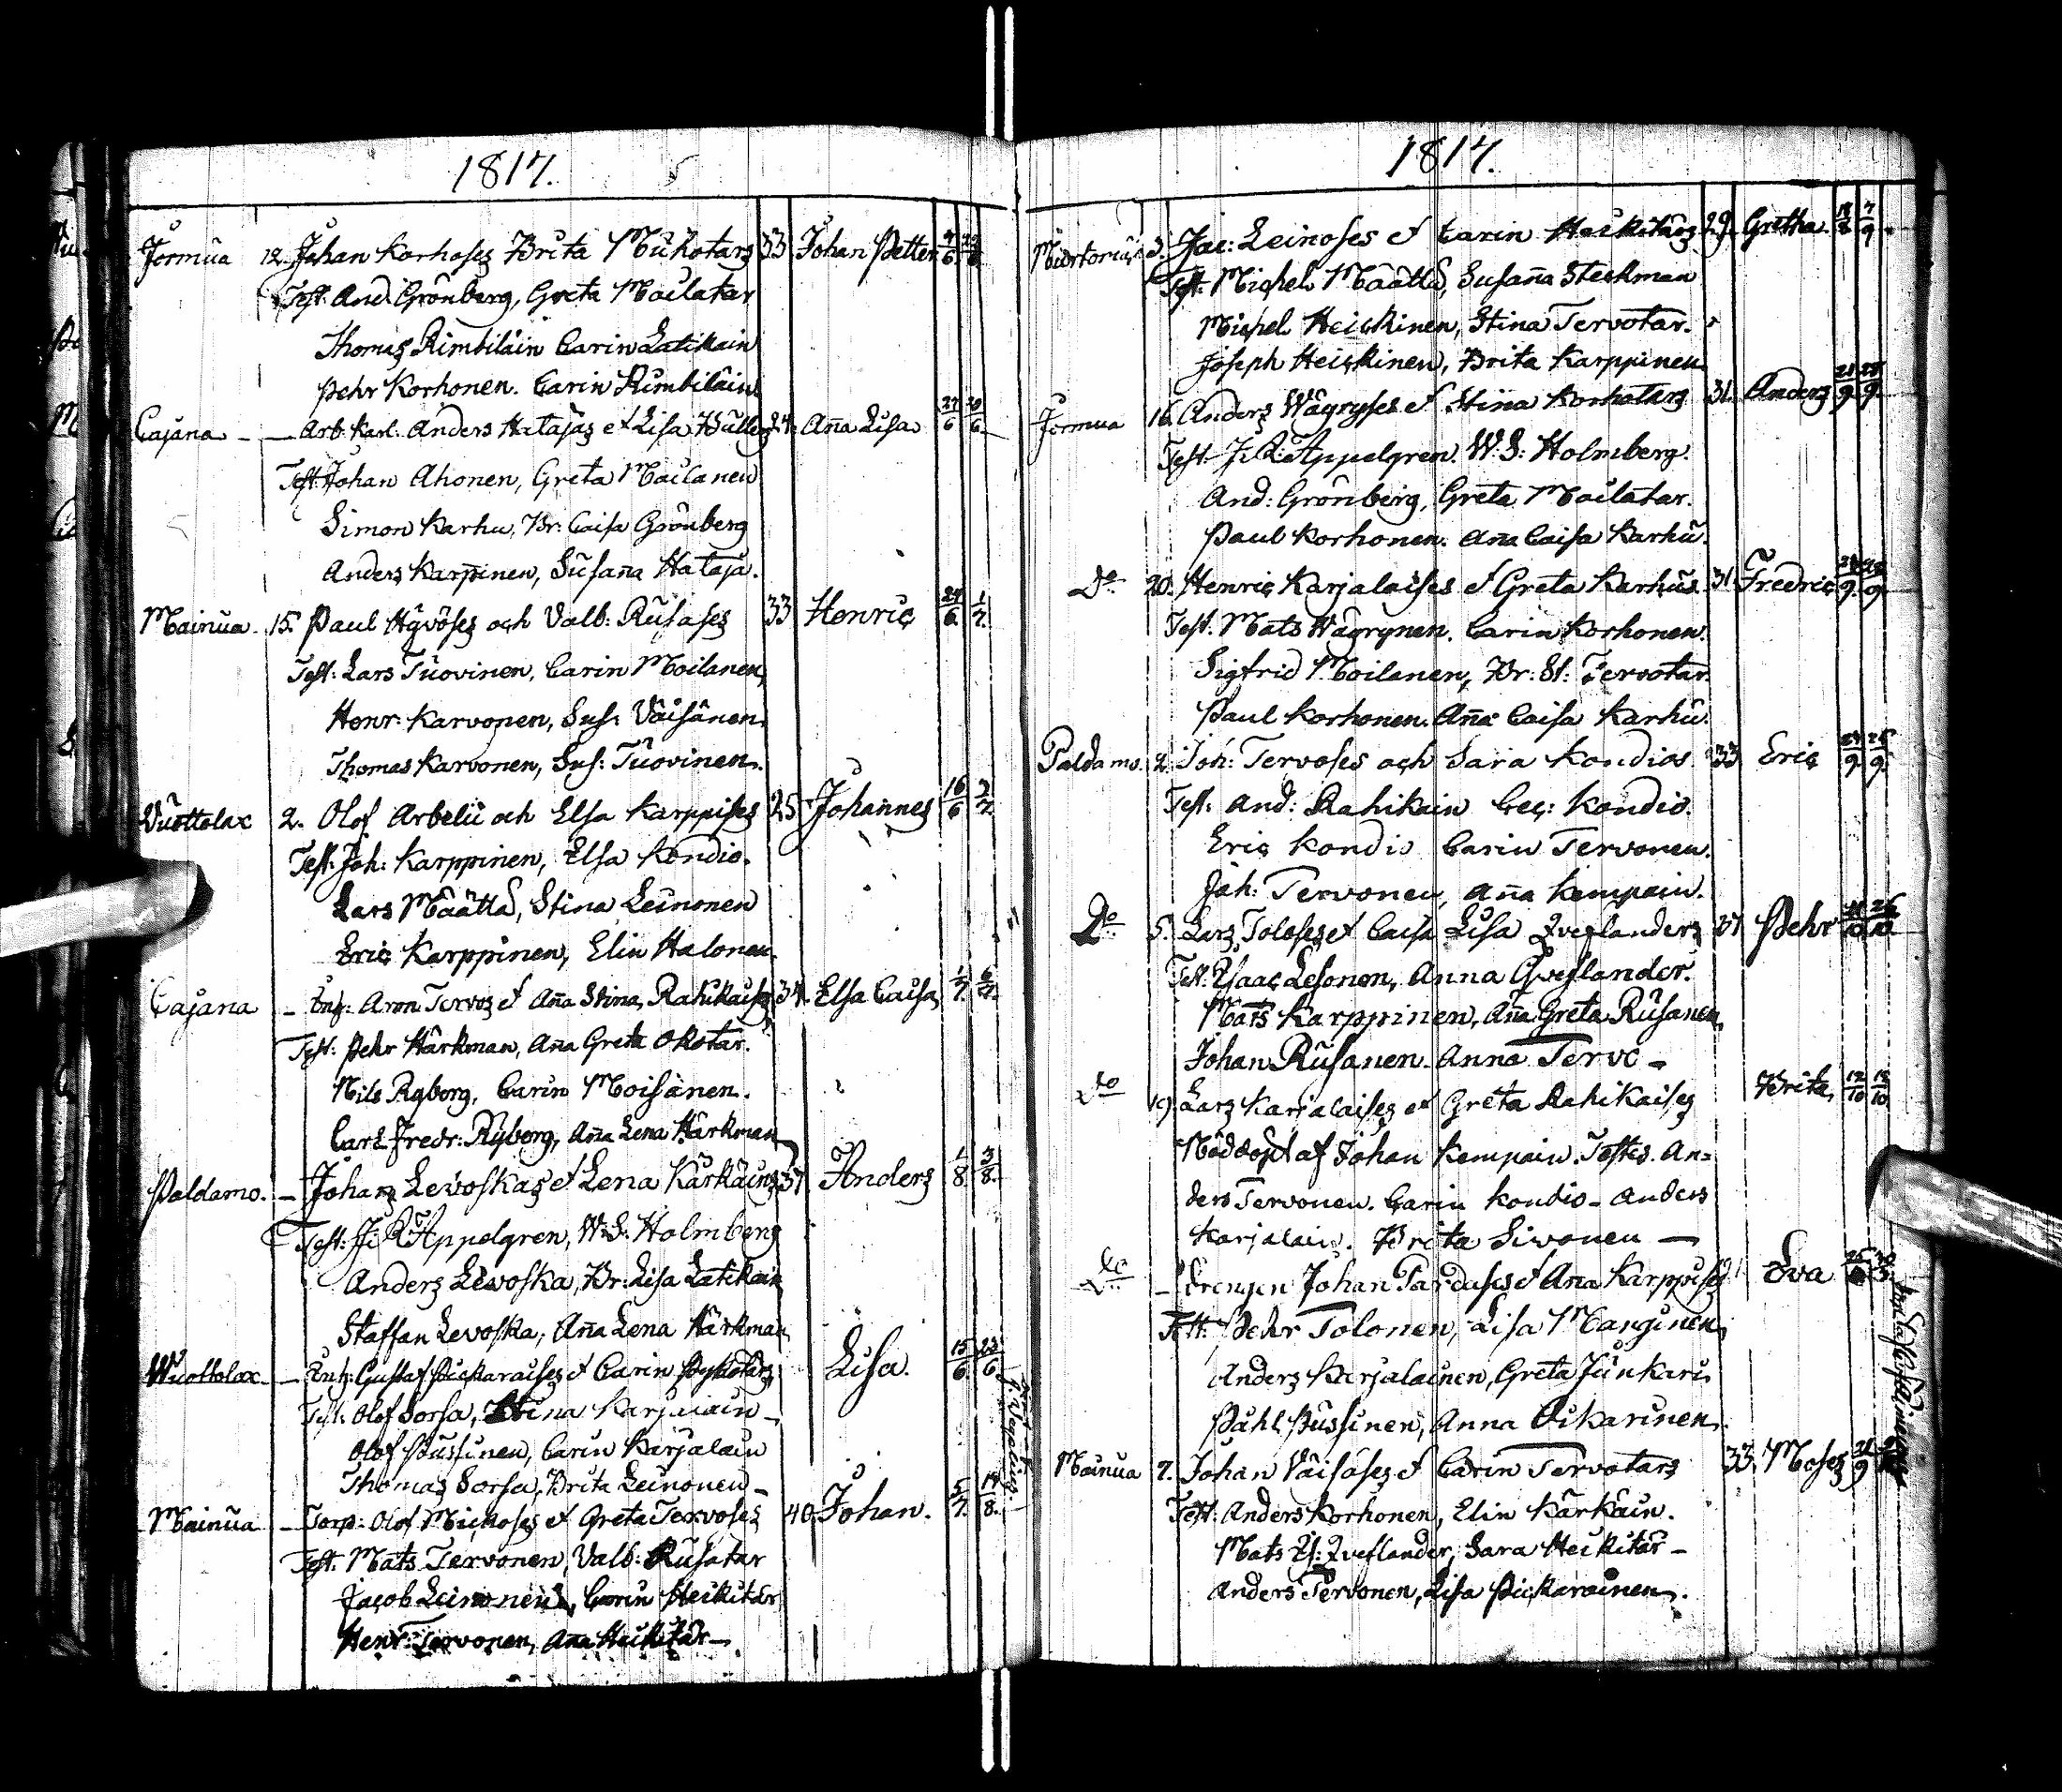 1817.
Jormua 12. Johan Korhoses Brita Mickotars 33 Johan Petter
Test. And. Grönberg, Greta Moilatar
Thomas Rimbiläin Carin Latikain
Pehr Korhonen. Carin Rimbiläin
Cajana Arb. Karl. Anders Hatajas et Lisa Bullers 24. Aña Lisa 27/6
Test. Johan Ahonen, Greta Moilanen
Simon Karhu, Br: Caisa Grönberg
Anders Karpinen, Susaña Hataja.
Mainua 15. Paul Hyvöses och Valb: Rusases 33 Henric 1/7
Test: Lars Tuovinen, Carin Moilanen,
Henr: Karvonen, Sus: Väisänen.
Thomas Karvonen, Sus: Tuovinen.
Vuottolax 2. Olof Arbelii och Elsa Karppises 25 Johannes 16/6
Test: Joh: Karppinen, Elsa Kondio.
Lars Määttä, Stina Leinonen
Eric Karppinen, Elin Halonen.
Cajana Aron Tervos et Aña Stina Rahikaises 34. Elsa Caisa 1/7
Test: Pehr Härkman, Aña Greta Okotar.
Nils Ryborg, Carin Moisänen.
Carl Fredr: Ryborg, Aña Lena Härkman
Paldamo. Johans Levoskas et Lena Kärkäins 37 Anders 1/8 3/8.
Test: J: R: Appelgren, W: S: Holmberg
Anders Levoska, Br: Lisa Latikain
Staffan Levoska, Aña Lena Härkman
Wuottolax Gustaf Pickaraises et Carin Lisa. 15/6 23/6
Test: Olof Sorsa, Stina Karjalain
Olof Pussinen, Carin Karjalain
Thomas Sorsa, Brita Leinonen
Mainua Torp: Olof Mickoses et Greta Tervoses 40. Johan. 5/7. 17/8.
Test: Mats Tervonen, Valb: Rusatar
Jacob Leinonen, Carin Heikitär
Henr: Tervonen, Aña Heikitär
1817.
3. Jac: Leinoses et Carin Heikitärs 29. Gretha. 7/9
Test: Michel Määttä, Susaña Steckman
Michel Heickinen, Stina Tervotar.
Joseph Heickinen, Brita Karppinen
Jormua 16. Anders Wägryses et Stina Korhotars 31. Anders 21/9 28/9
Test: J: R: Appelgren. W: S: Holmberg.
And: Grönberg, Greta Moilatar.
Paul Korhonen. Aña Caisa Karhu.
Do 20. Henric Karjalaises et Greta Karhus. 31. Fredric
Test: Mats Wägrynen. Carin Korhonen.
Sigfrid Moilanen, Br: St: Tervotar.
Paul Korhonen. Aña Caisa Karhu.
Paldamo. 2. Joh: Tervoses och Sara Kondios 33 Eric
Test: And: Rahikain Cec: Kondio.
Eric Kondio Carin Tervonen.
Joh: Tervonen, Aña Kempain.
Do 5. Lars Toloses et Caisa Lisa Qveflanders 37 Pehr
Test: Isaac Lesonen, Anna Qveflander.
Mats Karppinen, Aña Greta Rusanen
Johan Rusanen. Anna Tervo
Do 19. Lars Karjalaises et Greta Rahikaises Brita
Nöddöpt af Johan Kempain. Testes. An=
ders Tervonen. Carin Kondio Anders
Karjalain. Brita Sivonen
Do Drengen Johan Pardases et Aña Karppises Eva
Test: Pehr Tolonen, Lisa Manginen
Anders Karjalainen, Greta Junkari.
Påhl Pussinen, Anna Oikarinen
Mainua 7. Johan Väisäses et Carin Tervotars 33. Moses
Test: Anders Korhonen, Elin Kärkäin.
Mats Is: Qveflander, Sara Heikitär
Anders Tervonen, Lisa Pickarainen.